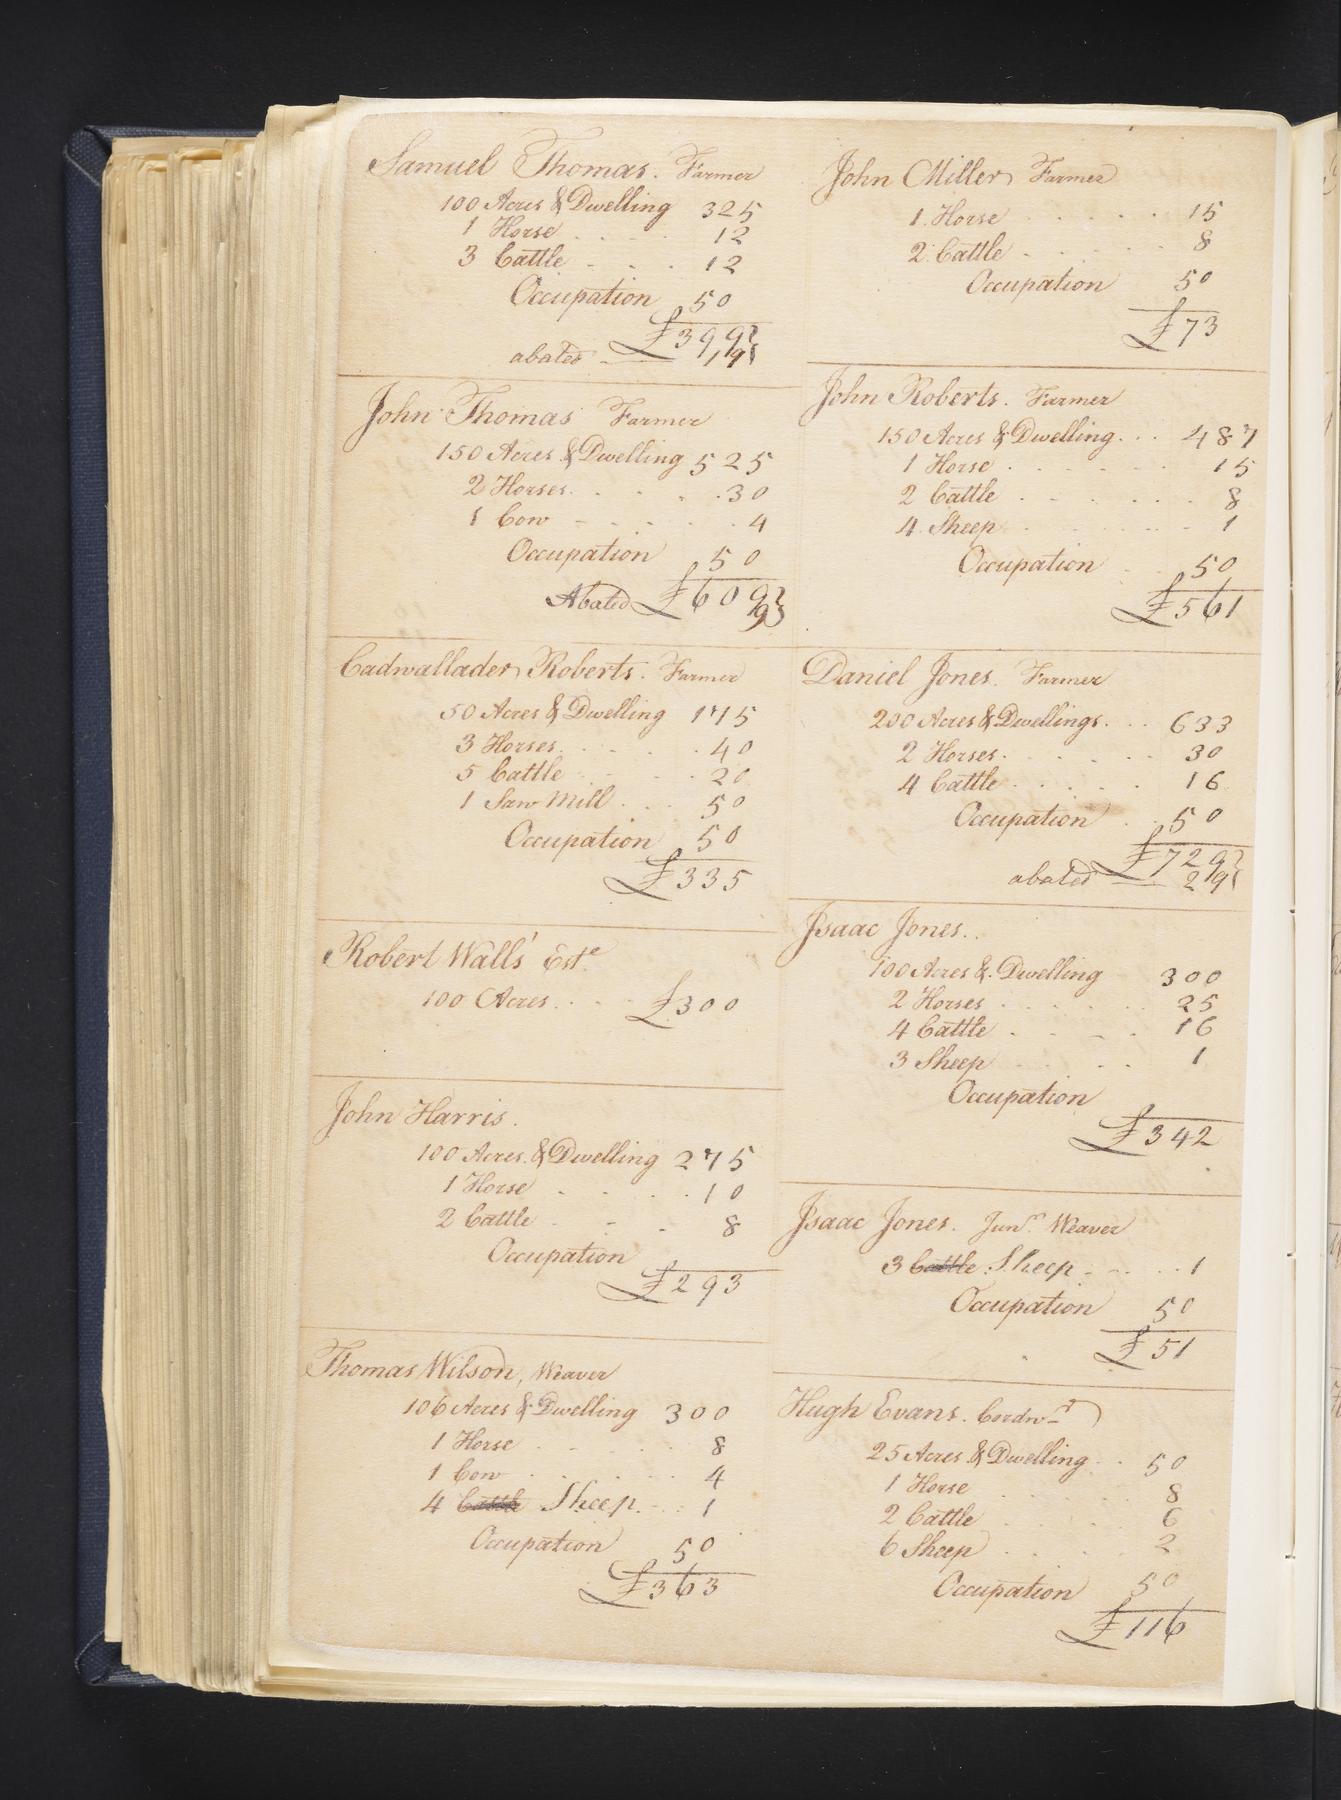 Samuel Thomas. Farmer
100 Acres & Dwelling 325
1 Horse 12
3 Cattle 12
Occupation 50
£399
abated 19
John Thomas Farmer
150 Acres & Dwelling 525
2 Horses 30
1 Cow 4
Occupation 50
Abated £609
Cadwallader Roberts. Farmer
50 Acres & Dwelling 175
3 Horses 40
5 Cattle 20
1 Saw Mill 50
Occupation 50
£335
Robert Walls' Este
100 Acres £300
John Harris.
100 Acres & Dwelling 275
1 Horse 10
2 Cattle 8
Occupation
£293
Thomas Wilson, Weaver
106 Acres & Dwelling 300
1 Horse 8
1 Cow 4
4 Cattle Sheep 1
Occupation 50
£363
John Miller Farmer
1 Horse 15
2 Cattle 8
Occupation 50
£73
John Roberts. Farmer
150 Acres & Dwelling 487
1 Horse 15
2 Cattle 8
4 Sheep 1
Occupation 50
£561
Daniel Jones. Farmer
200 Acres & Dwellings 633
2 Horses 30
4 Cattle 16
Occupation 50
£729
abated 29
Isaac Jones.
100 Acres & Dwelling 300
2 Horses 25
4 Cattle 16
3 Sheep 1
Occupation
£342
Isaac Jones. Junr. Weaver
3 Cattle Sheep 1
Occupation 50
£51
Hugh Evans. Cordwr
25 Acres & Dwelling 50
1 Horse 8
2 Cattle 6
6 Sheep 2
Occupation 50
£116